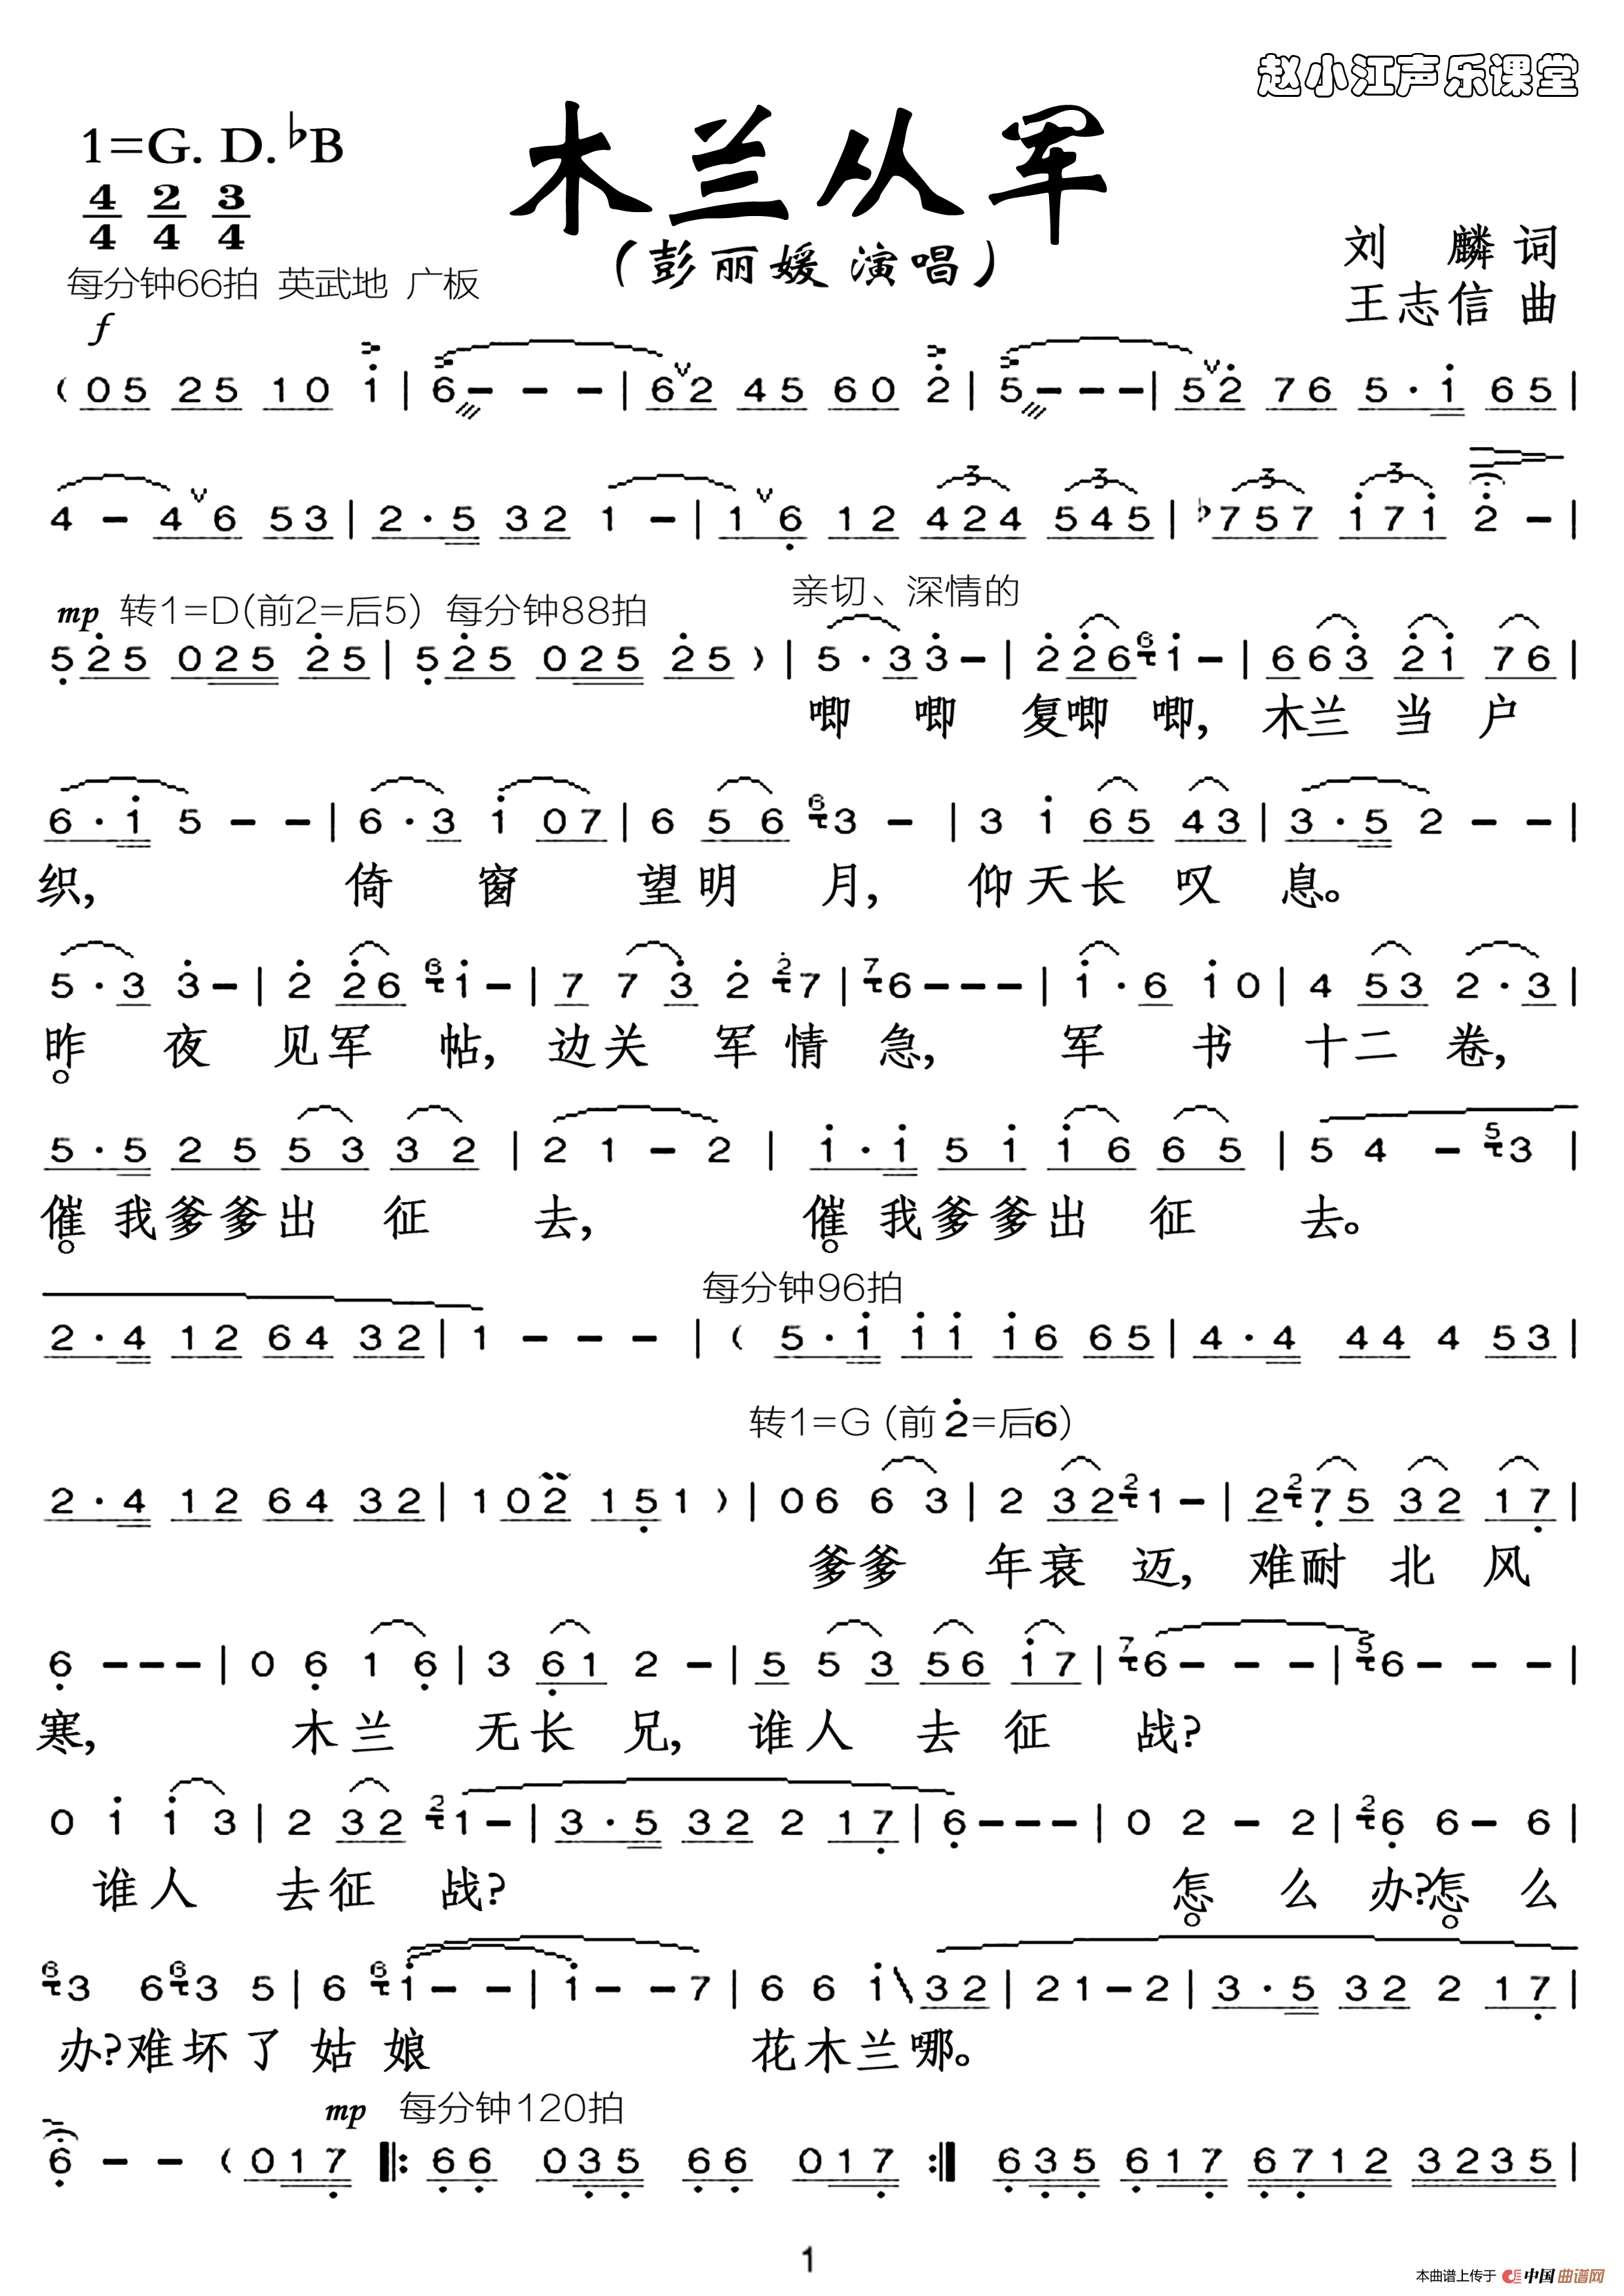 赵小江声乐课堂
木兰从军
1=G. D. ♭B
4/4 2/4 3/4
(彭丽媛 演唱)
刘 麟 词
王志信 曲
每分钟66拍 英武地 广板
f
( 05 25 10 i | 6 - - - | 62 45 60 2̇ | 5 - - - | 52̇ 76 5·i 65 |
4 - 46 53 | 2·5 32 1 - | 16̣ 12 424 545 | ♭757 i7i 2̇ - |
mp 转1=D(前2=后5) 每分钟88拍 亲切、深情的
5̣2̇5 02̇5 2̇5 | 5̣2̇5 025 2̇5 ) | 5·3 3̇ - | 2̇ 2̇6 i - | 6 63̇ 2̇i 76 |
唧 唧 复唧 唧, 木兰 当 户
6·i 5 - - | 6·3 i 07 | 6 56 3 - | 3 i 65 43 | 3·5 2 - - |
织, 倚 窗 望明 月, 仰天长 叹 息。
5·3 3̇ - | 2̇ 2̇6 i - | 7 73̇ 2̇ 7 | 6 - - - | i·6 i0 | 4 53 2·3 |
昨 夜 见军 帖, 边关 军情 急, 军 书 十二 卷,
5·5 25 53 32 | 2 1 - 2 | i·i 5i i6 65 | 5 4 - 3 |
催 我爹爹出 征 去, 催 我爹爹出 征 去。
每分钟96拍
2·4 12 64 32 | 1 - - - | ( 5·i ii i6 65 | 4·4 44 4 53 |
转1=G (前2̇=后6)
2·4 12 64 32 | 102 15̣1 ) | 06 6 3 | 2 32 1 - | 2 7̣5 32 17̣ |
爹爹 年衰 迈, 难耐 北 风
6̣ - - - | 0 6̣ 1 6̣ | 3 6̣1 2 - | 5 53 56 i7 | 6 - - - | 6 - - - |
寒, 木兰 无长 兄, 谁人 去 征 战?
0 i i 3 | 2 32 1 - | 3·5 32 2 17̣ | 6̣ - - - | 0 2 - 2 | 6̣ 6 - 6 |
谁人 去征 战? 怎 么 办?怎 么
3 6 3 5 | 6 i - - | i - - 7 | 6 6 i 32 | 2 1 - 2 | 3·5 32 2 17̣ |
办?难坏了 姑 娘 花木兰哪。
mp 每分钟120拍
6̣ - - ( 017̣ ‖: 6̣6̣ 03̣5̣ 6̣6̣ 017̣ :‖ 6̣3̣5̣ 6̣17̣ 6̣7̣12 3235 |
1
本曲谱上传于 中国曲谱网